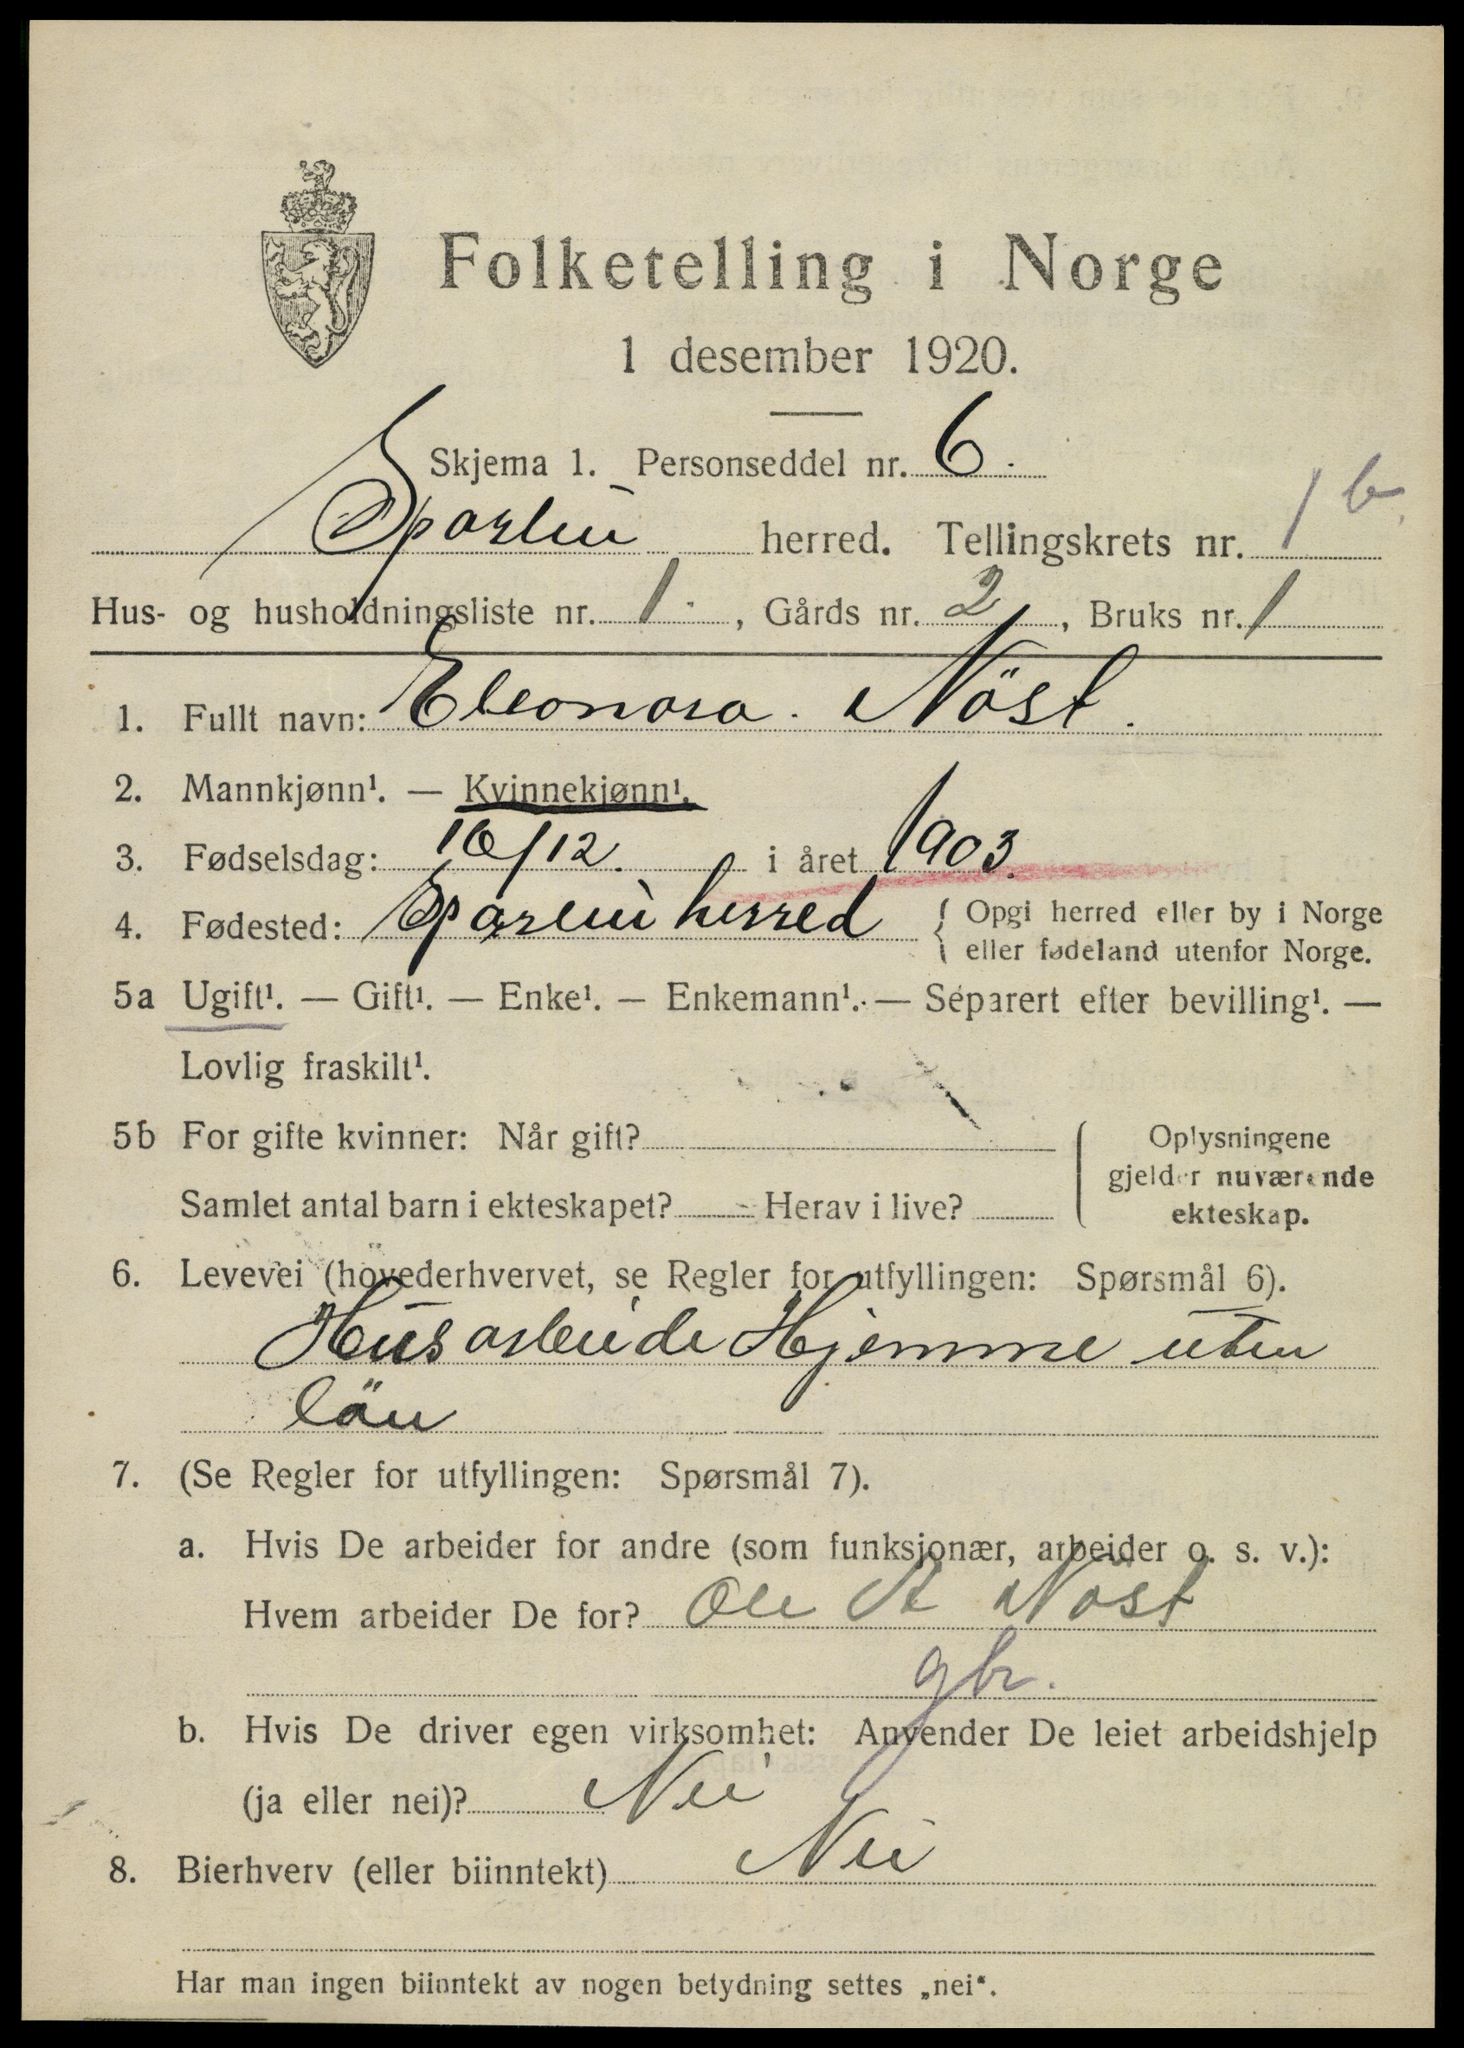 Folketelling i Norge
1 desember 1920.
Skjema 1. Personseddel nr. 6.
Sparbu herred. Tellingskrets nr. 1 b.
Hus- og husholdningsliste nr. 1. , Gårds nr. 2 , Bruks nr. 1
1. Fullt navn: Eleonora. Nöst.
2. Mannkjønn¹. — Kvinnekjønn¹.
3. Fødselsdag: 16/12. i året 1903.
4. Fødested: Sparbu herred { Opgi herred eller by i Norge
eller fødeland utenfor Norge.
5a Ugift¹. — Gift¹. — Enke¹. — Enkemann¹. — Separert efter bevilling¹. —
Lovlig fraskilt¹.
5b For gifte kvinner: Når gift?
Samlet antal barn i ekteskapet? Herav i live?
Oplysningene
gjelder nuværende
ekteskap.
6. Levevei (hovederhvervet, se Regler for utfyllingen: Spørsmål 6).
Husarbeide Hjemme uten
lön
7. (Se Regler for utfyllingen: Spørsmål 7).
a. Hvis De arbeider for andre (som funksjonær, arbeider o. s. v.):
Hvem arbeider De for? Ole A Nöst
gbr.
b. Hvis De driver egen virksomhet: Anvender De leiet arbeidshjelp
(ja eller nei)? Nei
8. Bierhverv (eller biinntekt) Nei
Har man ingen biinntekt av nogen betydning settes „nei“.